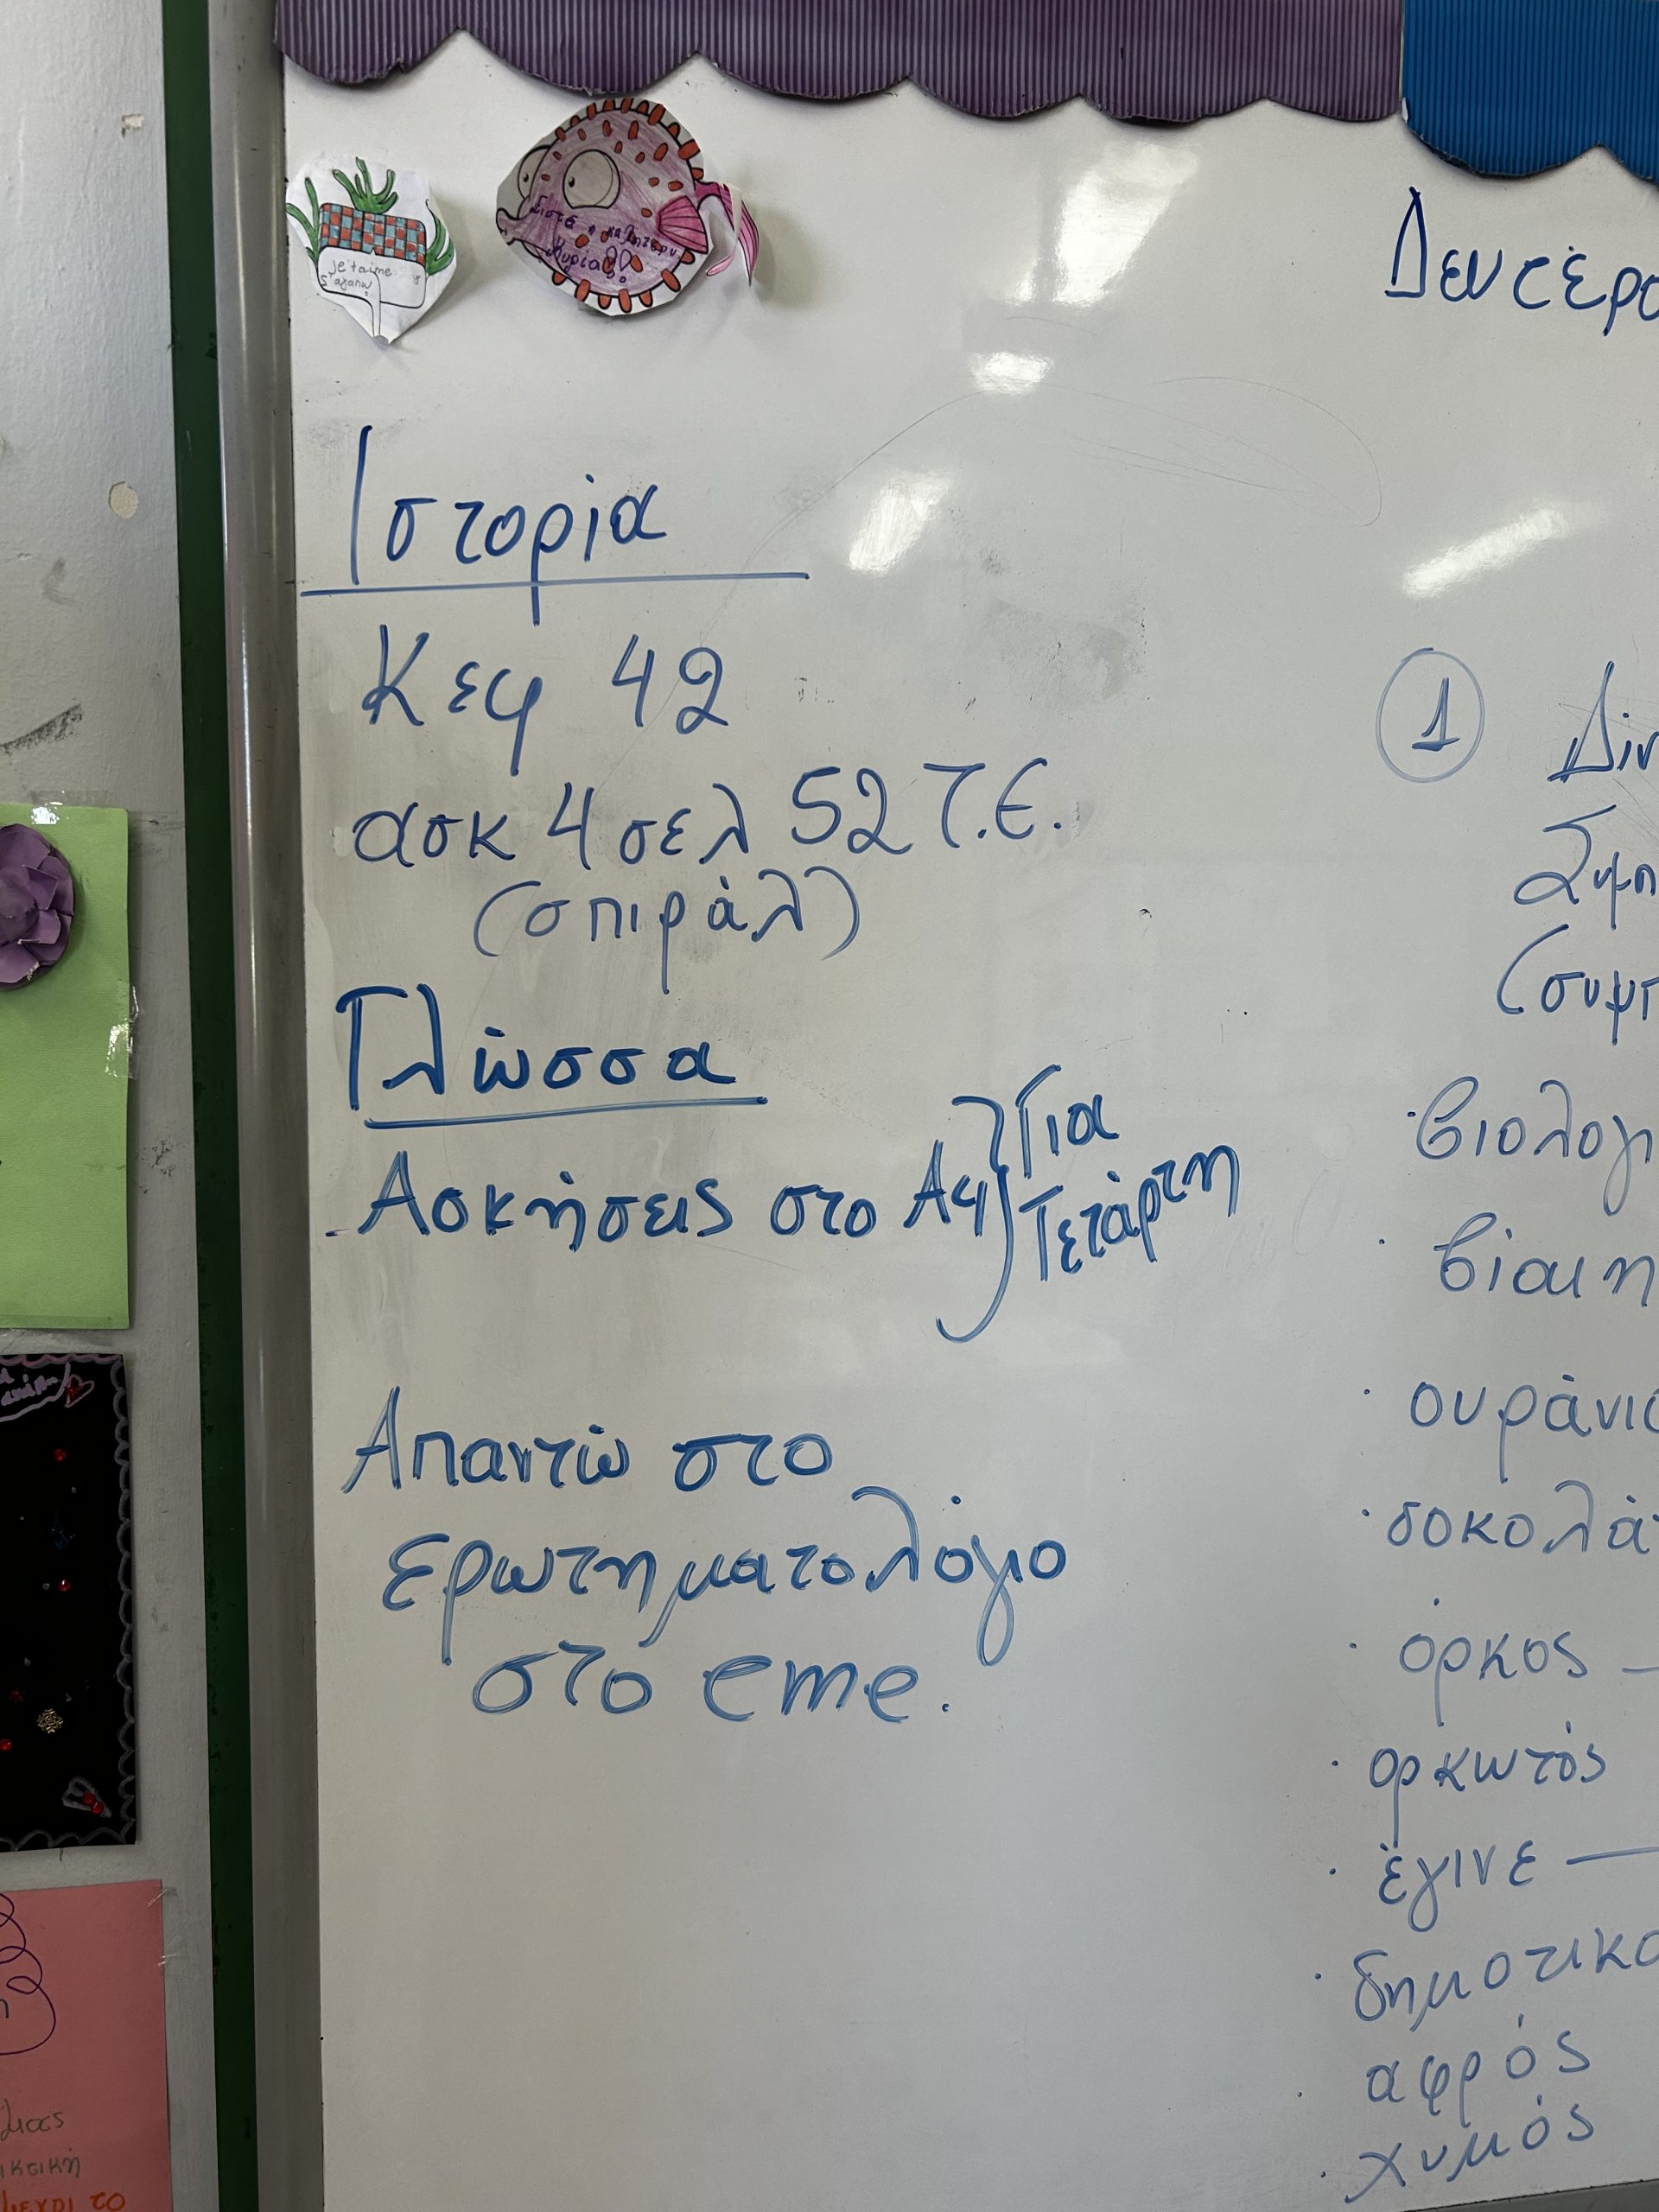 je t'aime
Είστε η καλύτερη
Κυρία
Ιστορία
Κεφ 42
ασκ 4 σελ 52 Τ.Ε.
(σπιράλ)
Γλώσσα
Ασκήσεις στο Αφ } Για
Τετάρτη
Απαντώ στο
ερωτηματολόγιο
στο eme.
Δευτέρα
1 Δίν
(συμπ
· βιολογι
· βίαιη
· ουράνιο
· σοκολάτ
· όρκος –
· ορκωτός
· έγινε –
· δημοτικό
· αφρός
· χυμός